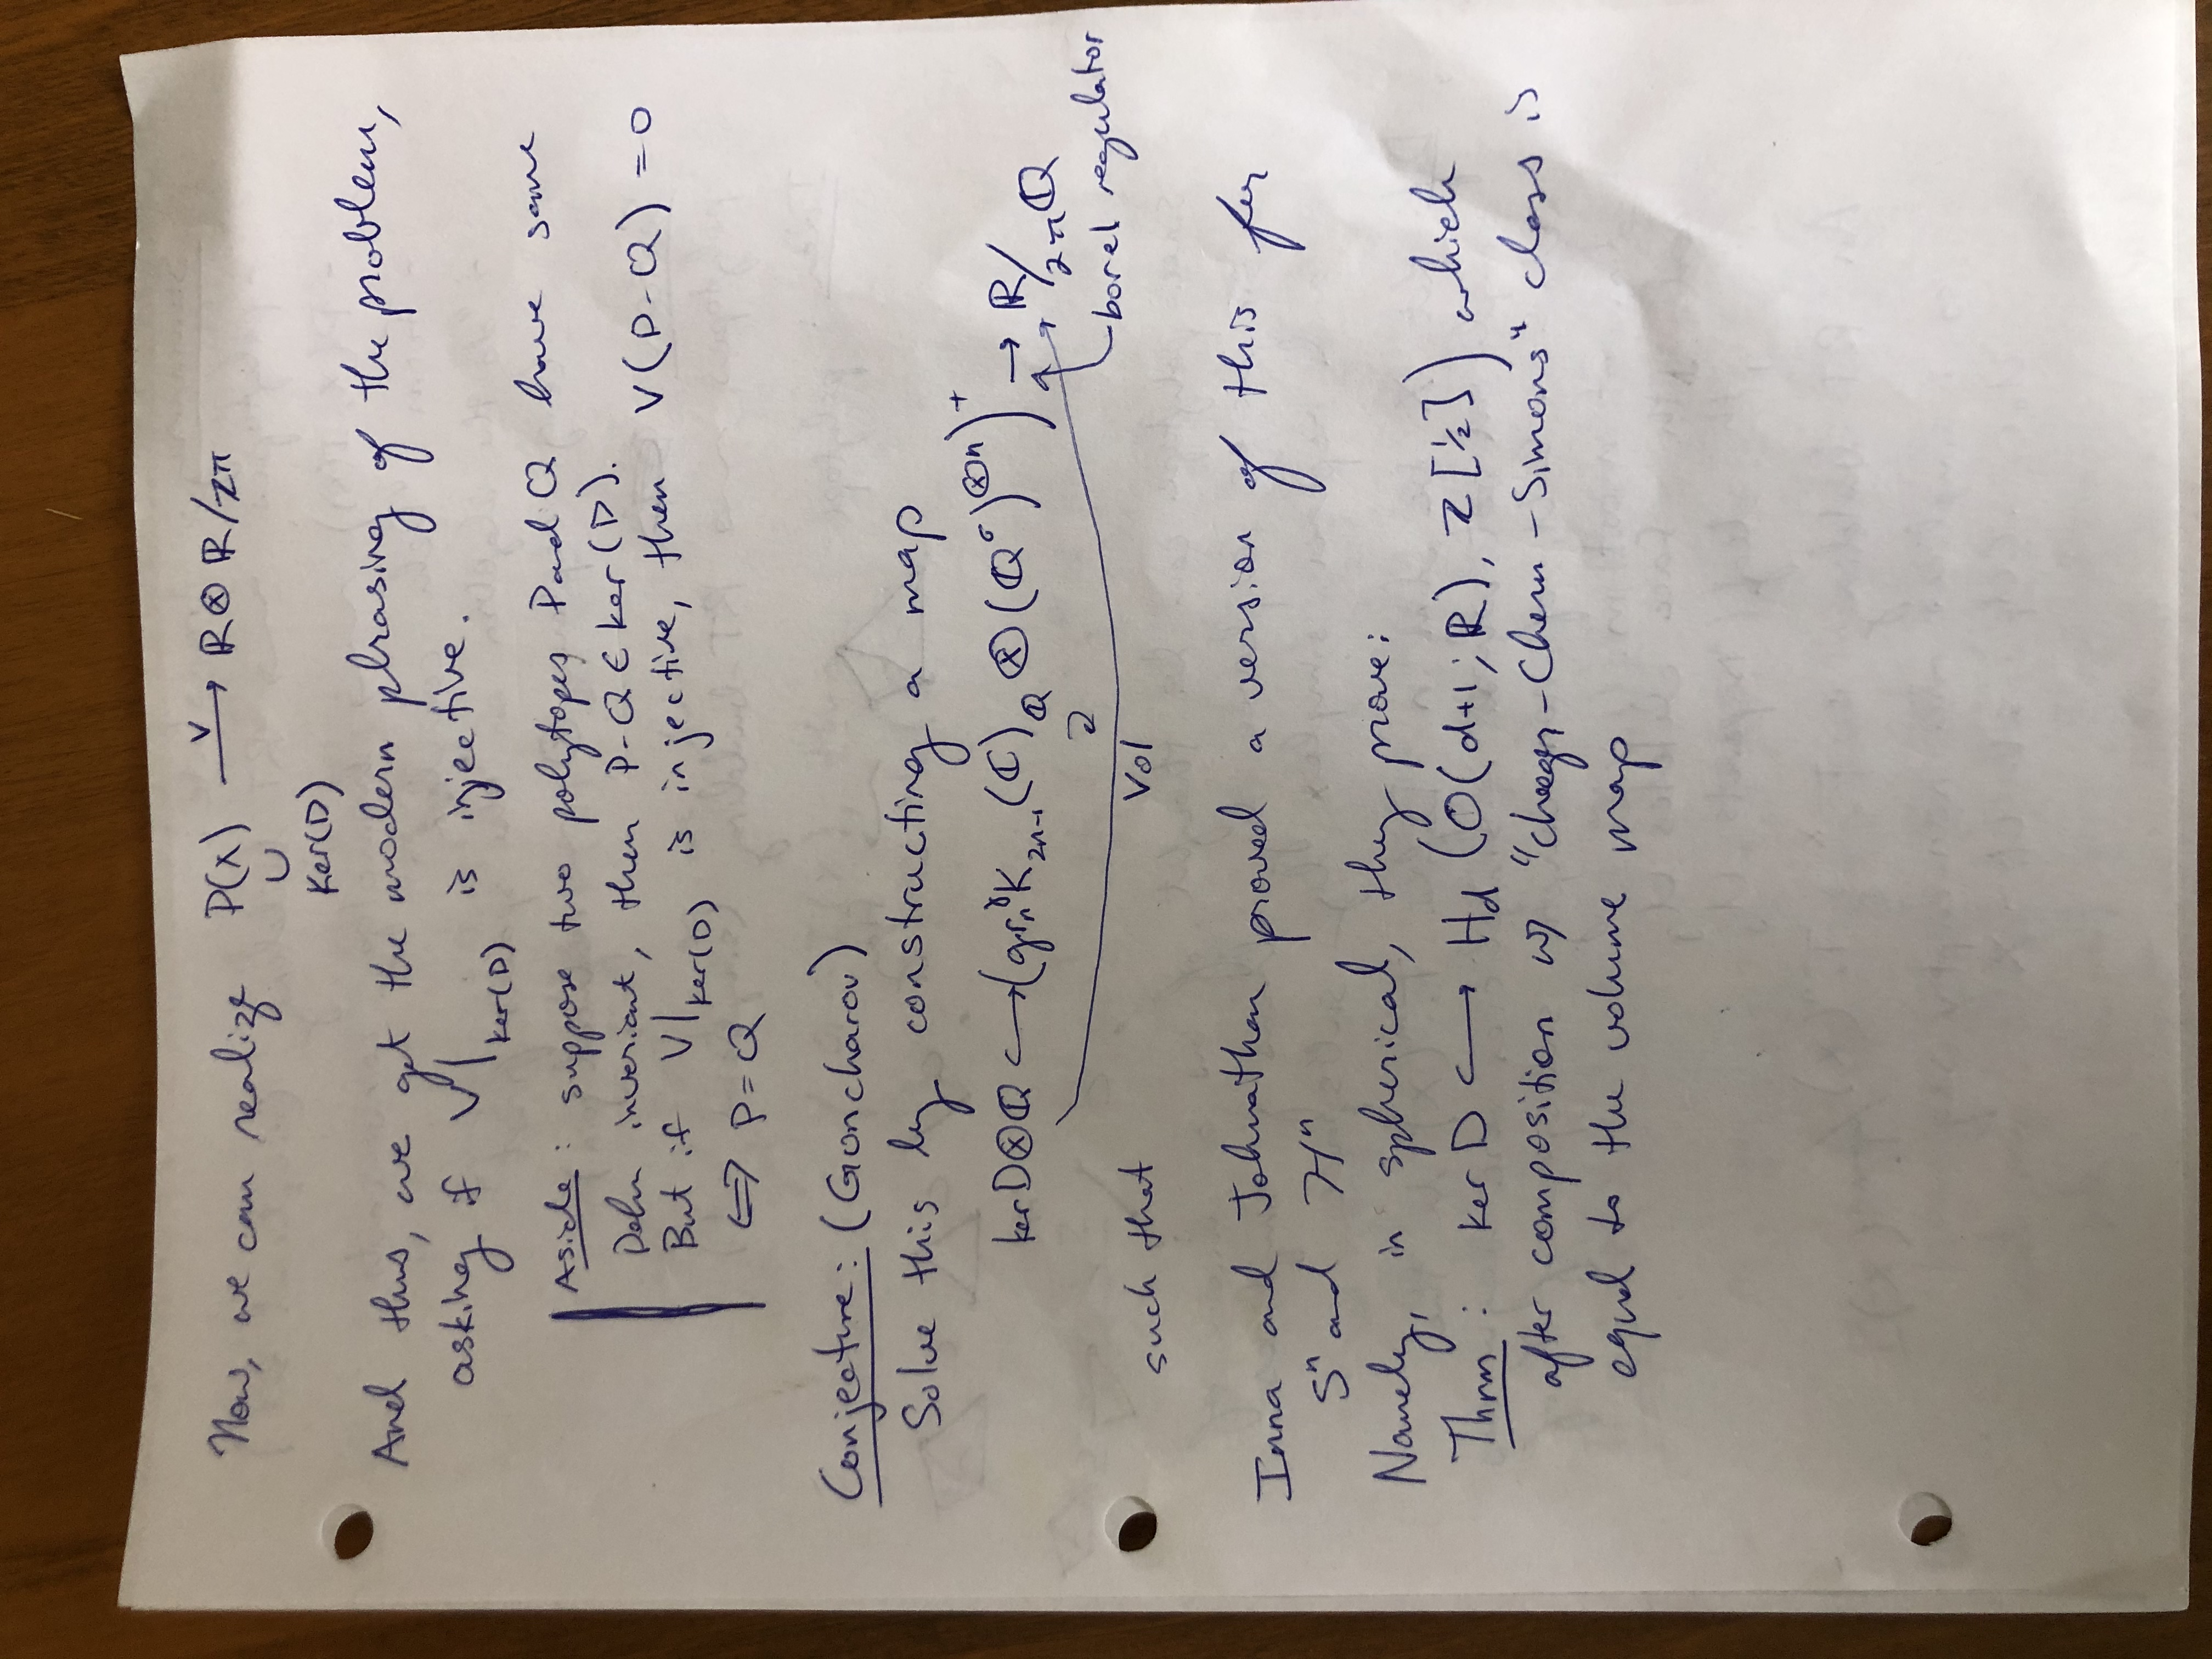 Now, we can realize P(X) —V→ ℝ⊗ℝ/ℤπ
∪
Ker(D)
And thus, we get the modern phrasing of the problem,
asking if V|ker(D) is injective.
Aside: suppose two polytopes P and Q have same
Dehn invariant, then P-Q ∈ ker(D).
But if V|ker(D) is injective, then V(P-Q) = 0
⟺ P=Q
Conjecture: (Goncharov)
Solve this by constructing a map
ker D⊗ℚ ↪ (gr_n^γ K_{2n-1}(ℂ)_ℚ ⊗ (ℚ^σ)^{⊗n})^+ → ℝ/2πℚ
borel regulator
such that Vol
Inna and Johnathan proved a version of this for
S^n and H^n
Namely, in spherical, they prove:
Thrm: ker D ↪ H_d (O(d+1; ℝ), ℤ[½]) which
after composition w/ "cheeger-Chern-Simons" class is
equal to the volume map